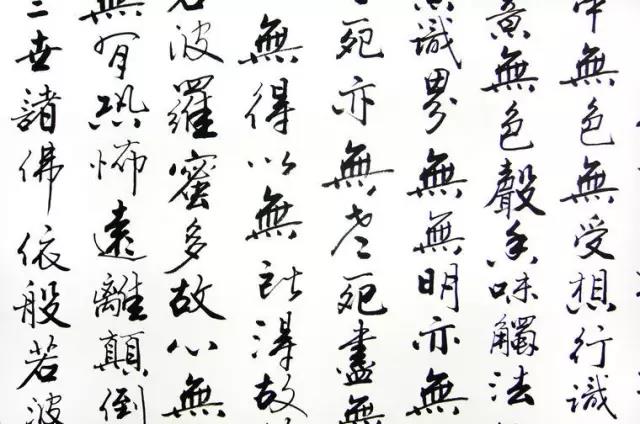 中無色無受想行識
意無色聲香味觸法
意識界無無明亦無
死亦無老死盡無
無得以無所得故
若波羅蜜多故心無
無有恐怖遠離顛倒
三世諸佛依般若波